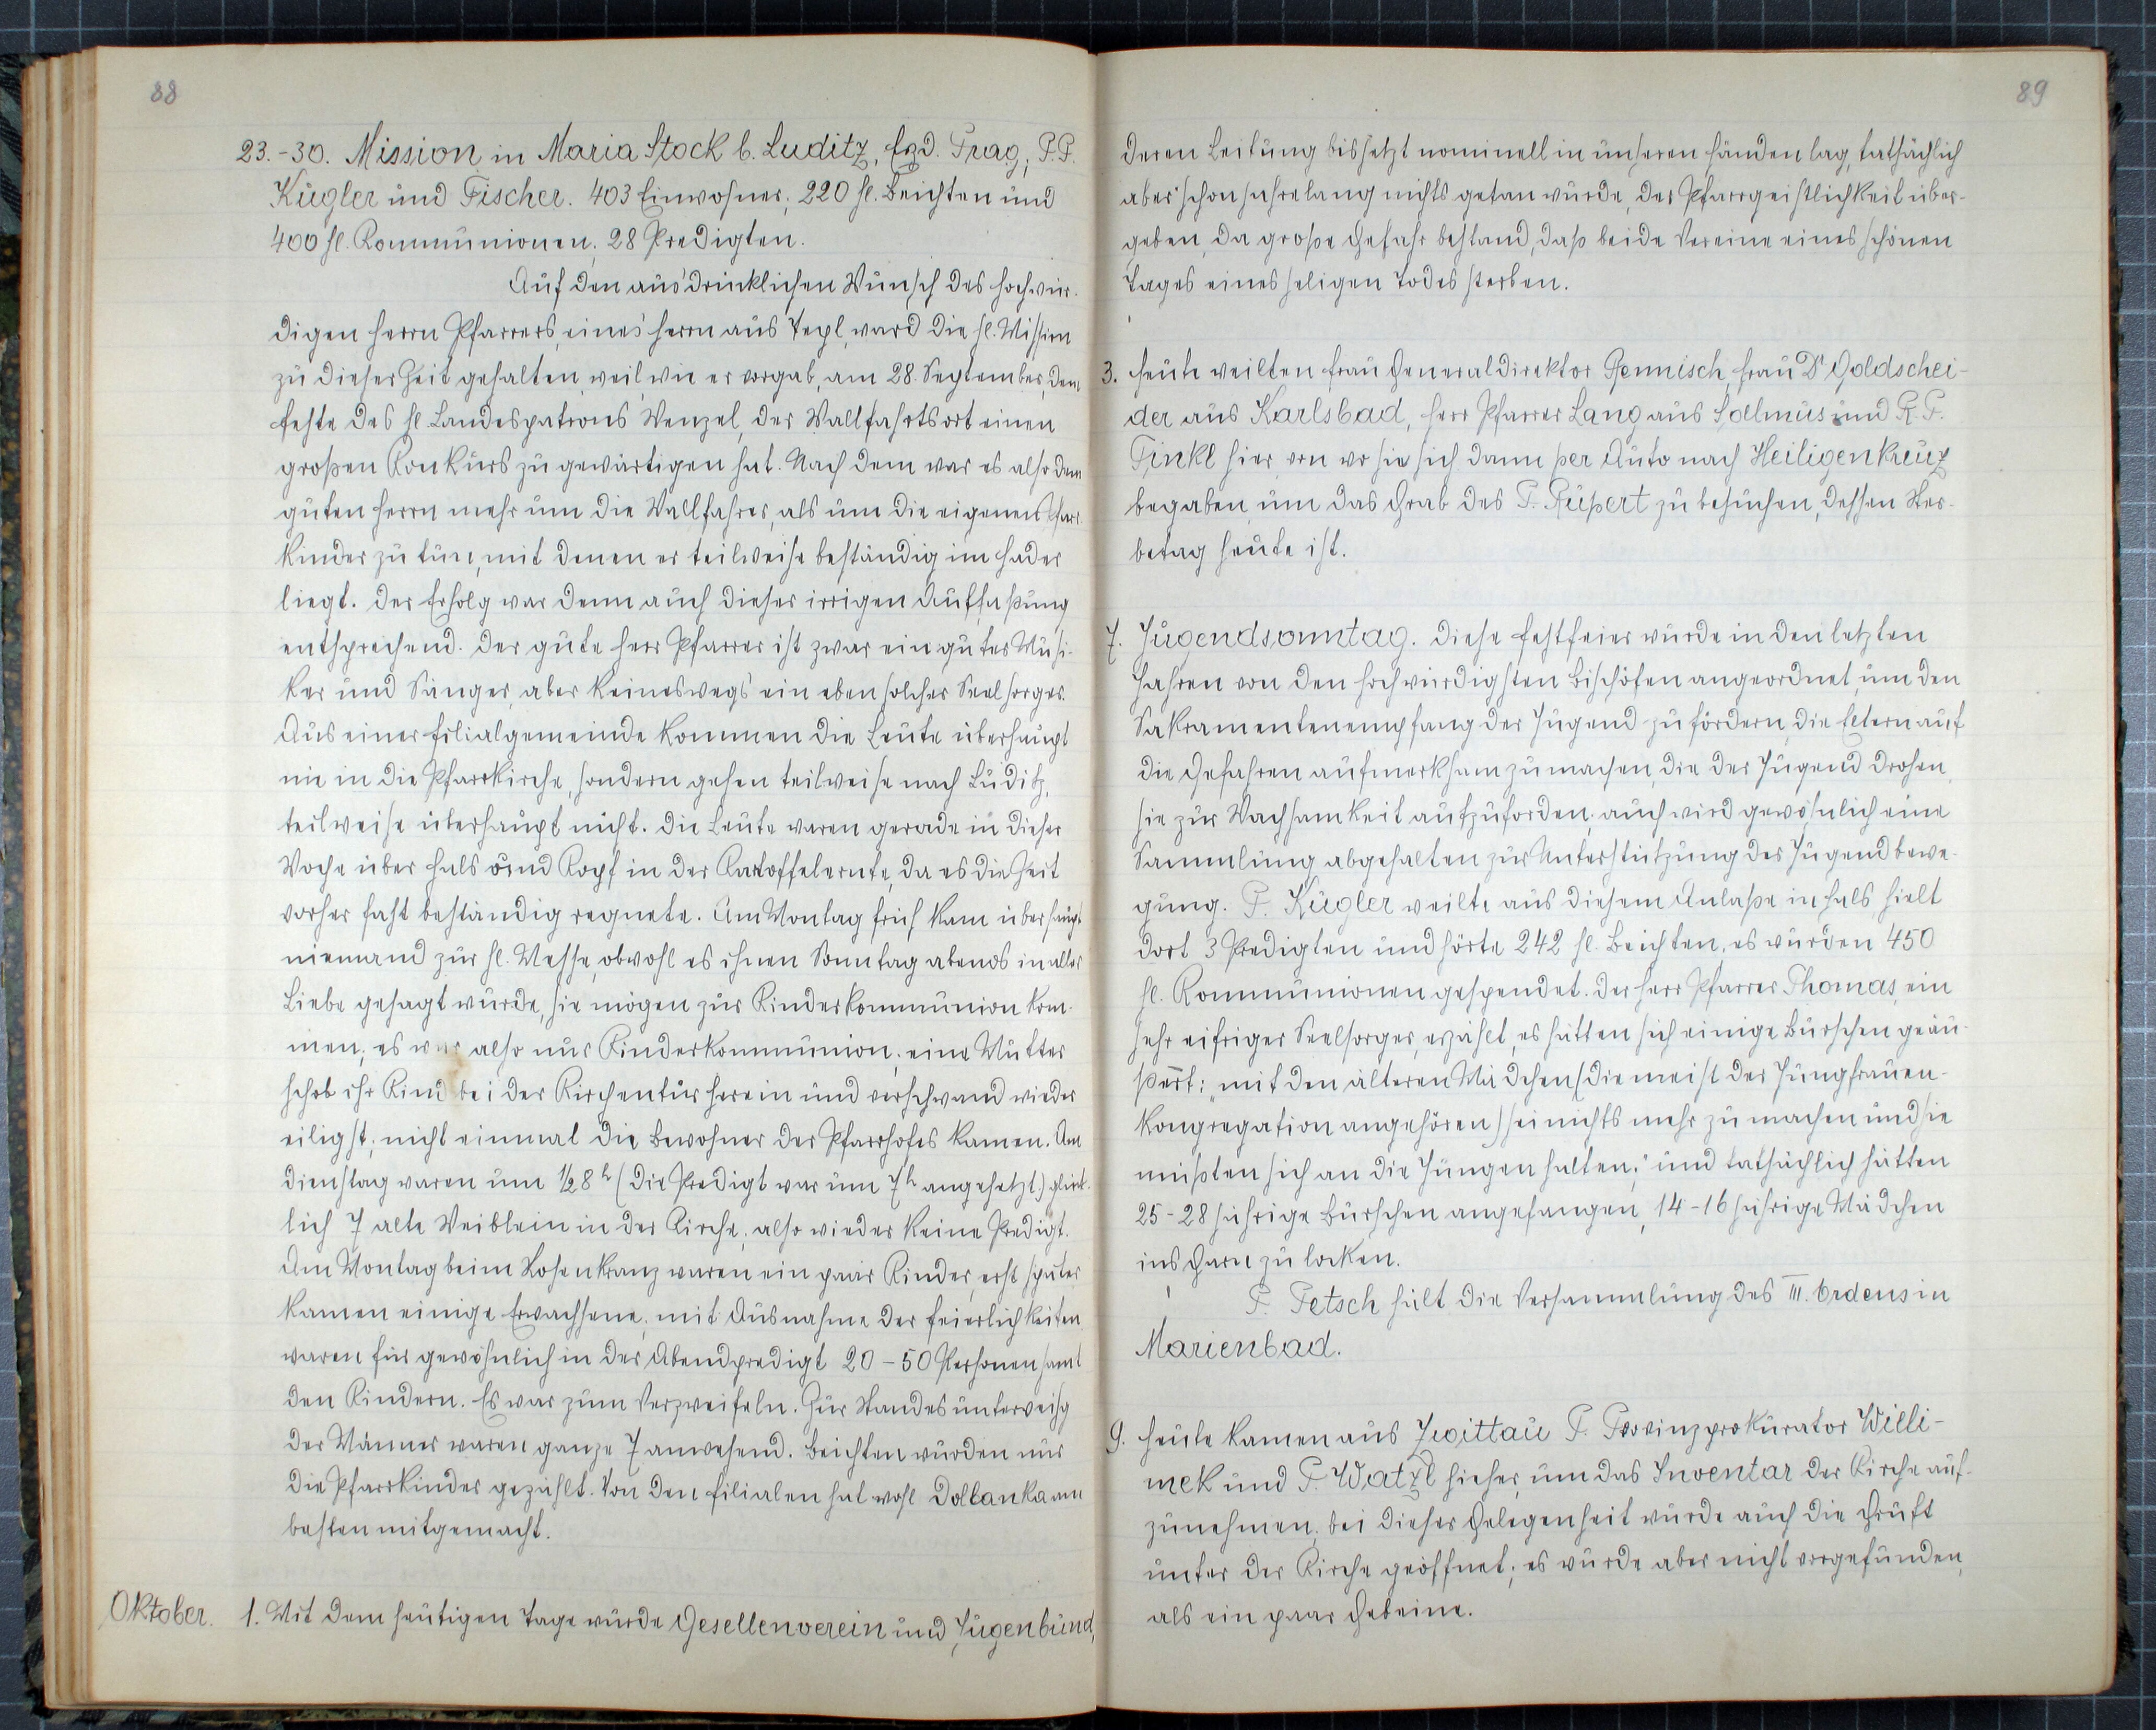 88
23.-30. Mission in Maria Stock b. Luditz, Ezd. Prag, P.P.
Kügler und Fischer. 403 Einwohner; 220 hl. Beichten und
400 hl. Kommunionen; 28 Predigten.
Auf den ausdrücklichen Wunsch des hochwür-
digen Herrn Pfarrers, eines Herrn aus Tepl, ward die hl. Mission
zu dieser Zeit gehalten, weil wie er vorgab, am 28. September, dem
Feste des hl. Landespatrons Wenzel, der Wallfahrtsort einen
großen Konkurs zu gewärtigen hat. Nach dem war es also dem
guten Herrn mehr um die Wallfahrer, als um die eigenen Pfarr-
kinder zu tun, mit denen er teilweise beständig im Hader
liegt. Der Erfolg war denn auch dieser irrigen Auffaßung
entsprechend. Der gute Herr Pfarrer ist zwar ein guter Musi-
ker und Sänger, aber keineswegs ein eben solcher Seelsorger.
Aus einer Filialgemeinde kommen die Leute überhaupt
nie in die Pfarrkirche, sondern gehen teilweise nach Luditz,
teilweise überhaupt nicht. Die Leute waren gerade in dieser
Woche über Hals und Kopf in der Kartoffelernte, da es die Zeit
vorher fast beständig regnete. Am Montag früh kam überhaupt
niemand zur hl. Messe, obwohl es ihnen Sonntag abends in aller
Liebe gesagt wurde, sie mögen zur Kinderkommunion kom-
men; es war also nur Kinderkommunion; eine Mutter
schob ihr Kind bei der Kirchentür herein und verschwand wieder
eiligst; nicht einmal die Bewohner des Pfarrhofes kamen. Am
Dienstag waren um ½8 h (die Predigt war um 7 h angesetzt) glück-
lich 7 alte Weiblein in der Kirche; also wieder keine Predigt.
Am Montag beim Rosenkranz waren ein paar Kinder, erst später
kamen einige Erwachsene; mit Ausnahme der Feierlichkeiten
waren für gewöhnlich in der Abendpredigt 20-50 Personen samt
den Kindern. Es war zum Verzweifeln. Zur Standesunterweisg
der Männer waren ganze 7 anwesend. Beichten wurden nur
die Pfarrkinder gezählt. Von den Filialen hat wohl Dollanka am
besten mitgemacht.
Oktober. 1. Mit dem heutigen Tage wurde Gesellenverein und Jugenbund,
89
deren Leitung bis jetzt nominell in unseren Händen lag, tatsächlich
aber schon jahrelang nichts getan wurde, der Pfarrgeistlichkeit über-
geben, da große Gefahr bestand, daß beide Vereine eines schönen
Tages eines seligen Todes sterben.
3. Heute weilten Frau Generaldirektor Rennisch, Frau Dr Goldschei-
der aus Karlsbad, Herr Pfarrer Lang aus Sollmus und R. P.
Tinkl hier, von wo sie sich dann per Auto nach Heiligenkreuz
begaben, um das Grab des P. Rupert zu besuchen, dessen Ster-
betag heute ist.
7. Jugendsonntag. Diese Festfeier wurde in den letzten
Jahren von den hochwürdigsten Bischöfen angeordnet, um den
Sakramentenempfang der Jugend zu fördern, die Eltern auf
die Gefahren aufmerksam zu machen, die der Jugend drohen,
sie zur Wachsamkeit aufzuforden; auch wird gewöhnlich eine
Sammlung abgehalten zur Unterstützung der Jugendbewe-
gung. P. Kügler weilte aus diesem Anlaße in Hals, hielt
dort 3 Predigten und hörte 242 hl. Beichten; es wurden 450
hl. Kommunionen gespendet. Der Herr Pfarrer Thomas, ein
sehr eifriger Seelsorger, erzählt, es hätten sich einige Burschen geäu-
ßert: „mit den älteren Mädchen (die meist der Jungfrauen-
kongregation angehören) sei nichts mehr zu machen und sie
müßten sich an die Jungen halten;" und tatsächlich hätten
25-28 jährige Burschen angefangen, 14-16 jährige Mädchen
ins Garn zu locken.
P. Petsch hält die Versammlung des III. Ordens in
Marienbad.
9. Heute kamen aus Zwittau P. Provinzprokurator Willi-
mek und P. Watzl hieher, um das Inventar der Kirche auf-
zunehmen; bei dieser Gelegenheit wurde auch die Gruft
unter der Kirche geöffnet; es wurde aber nicht vorgefunden,
als ein paar Gebeine.